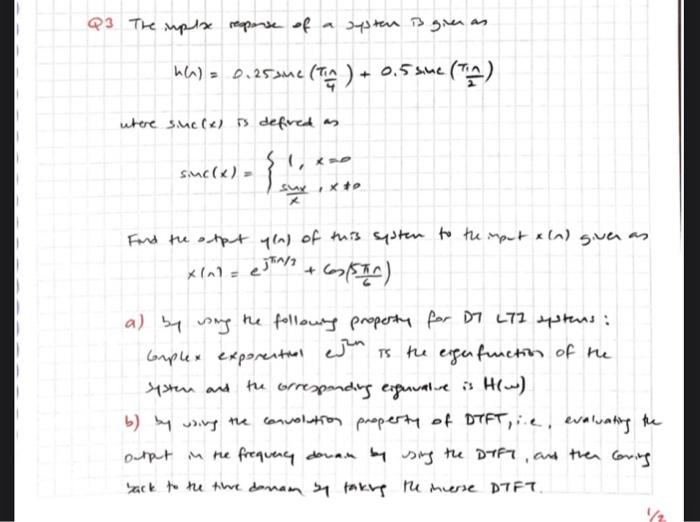 Q3 The impulse response of a system is given as
h(n) = 0.25 sinc(πn/4) + 0.5 sinc(πn/2)
where sinc(x) is defined as
sinc(x) = { 1, x=0
sinx/x, x≠0
Find the output y(n) of this system to the input x(n) given as
x(n) = e^jπn/3 + Cos(5πn/6)
a) by using the following property for DT LTI systems:
Complex exponential e^jωn is the eigenfunction of the
system and the corresponding eigenvalue is H(ω)
b) by using the convolution property of DTFT, i.e., evaluating the
output in the frequency domain by using the DTFT, and then coming
back to the time domain by taking the inverse DTFT.
1/2